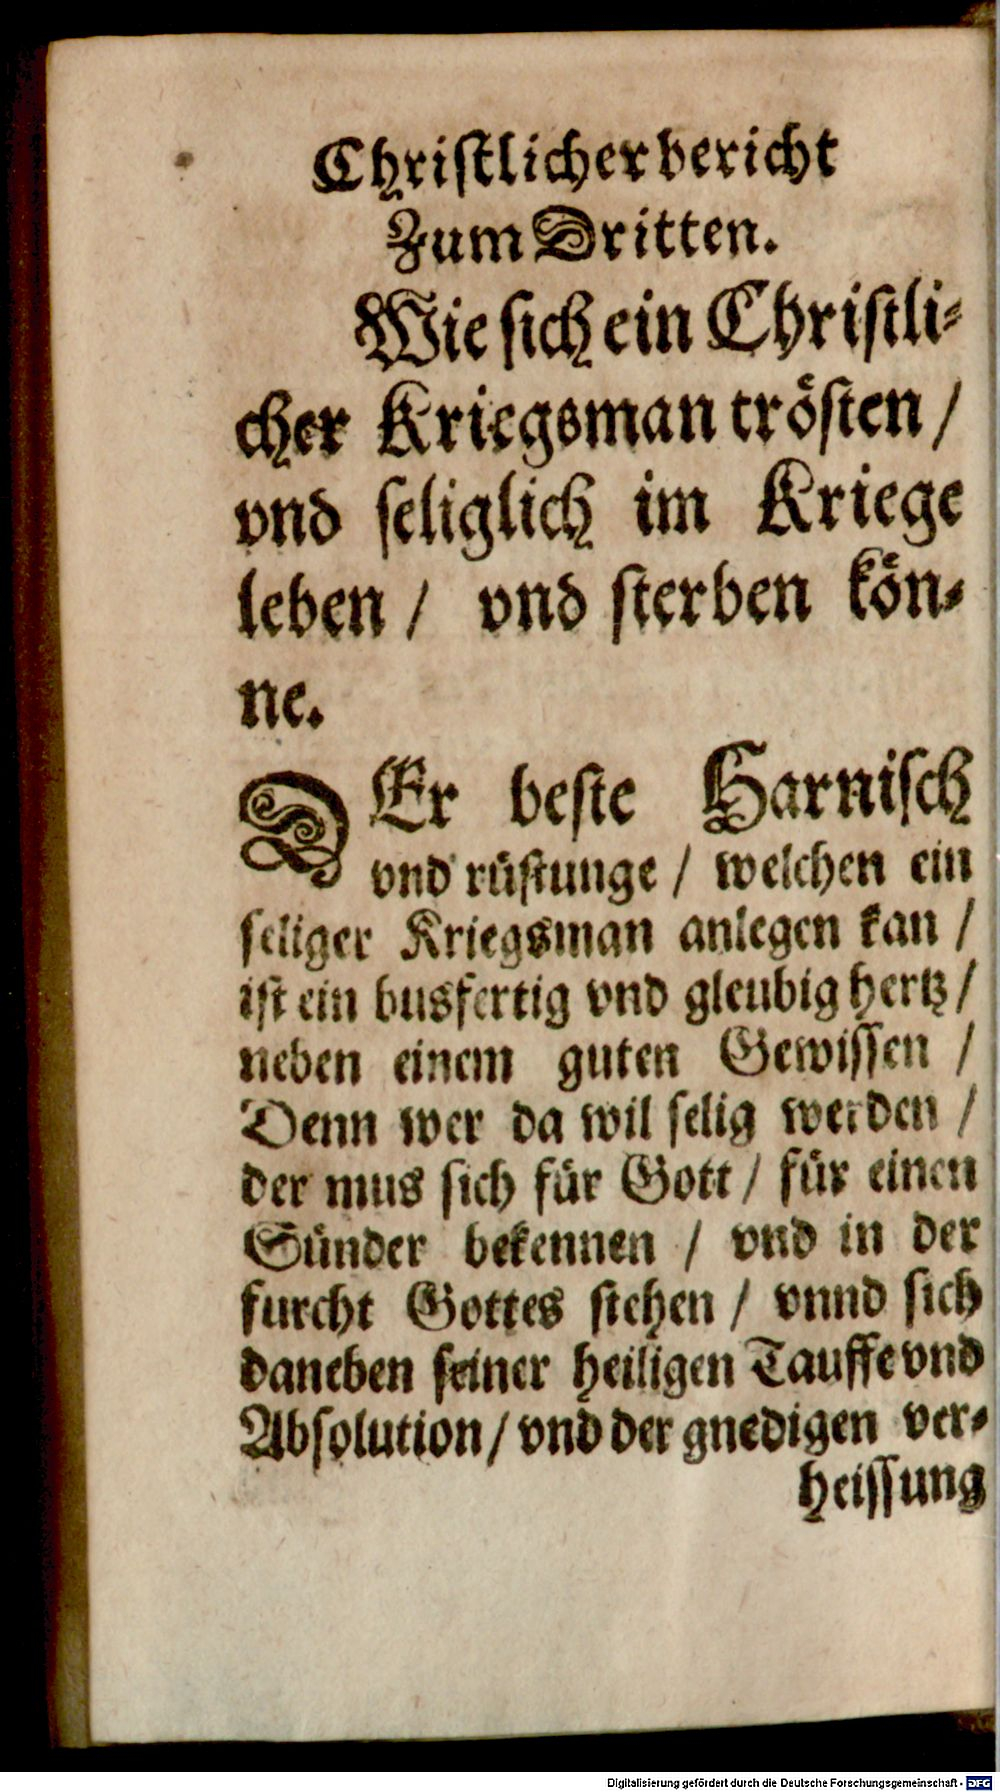 Chriſtlicher bericht
Zum Dritten.
Wie ſich ein Chriſtli⸗
cher Kriegsman tröſten /
vnd ſeliglich im Kriege
leben / vnd ſterben kön⸗
ne.
DEr beſte Harniſch
vnd rüſtunge / welchen ein
ſeliger Kriegsman anlegen kan /
iſt ein busfertig vnd gleubig hertz /
neben einem guten Gewiſſen /
Denn wer da wil ſelig werden /
der mus ſich für Gott / für einen
Sünder bekennen / vnd in der
furcht Gottes ſtehen / vnnd ſich
daneben ſeiner heiligen Tauffe vnd
Abſolution / vnd der gnedigen ver⸗
heiſſung
Digitalisierung gefördert durch die Deutsche Forschungsgemeinschaft - DFG